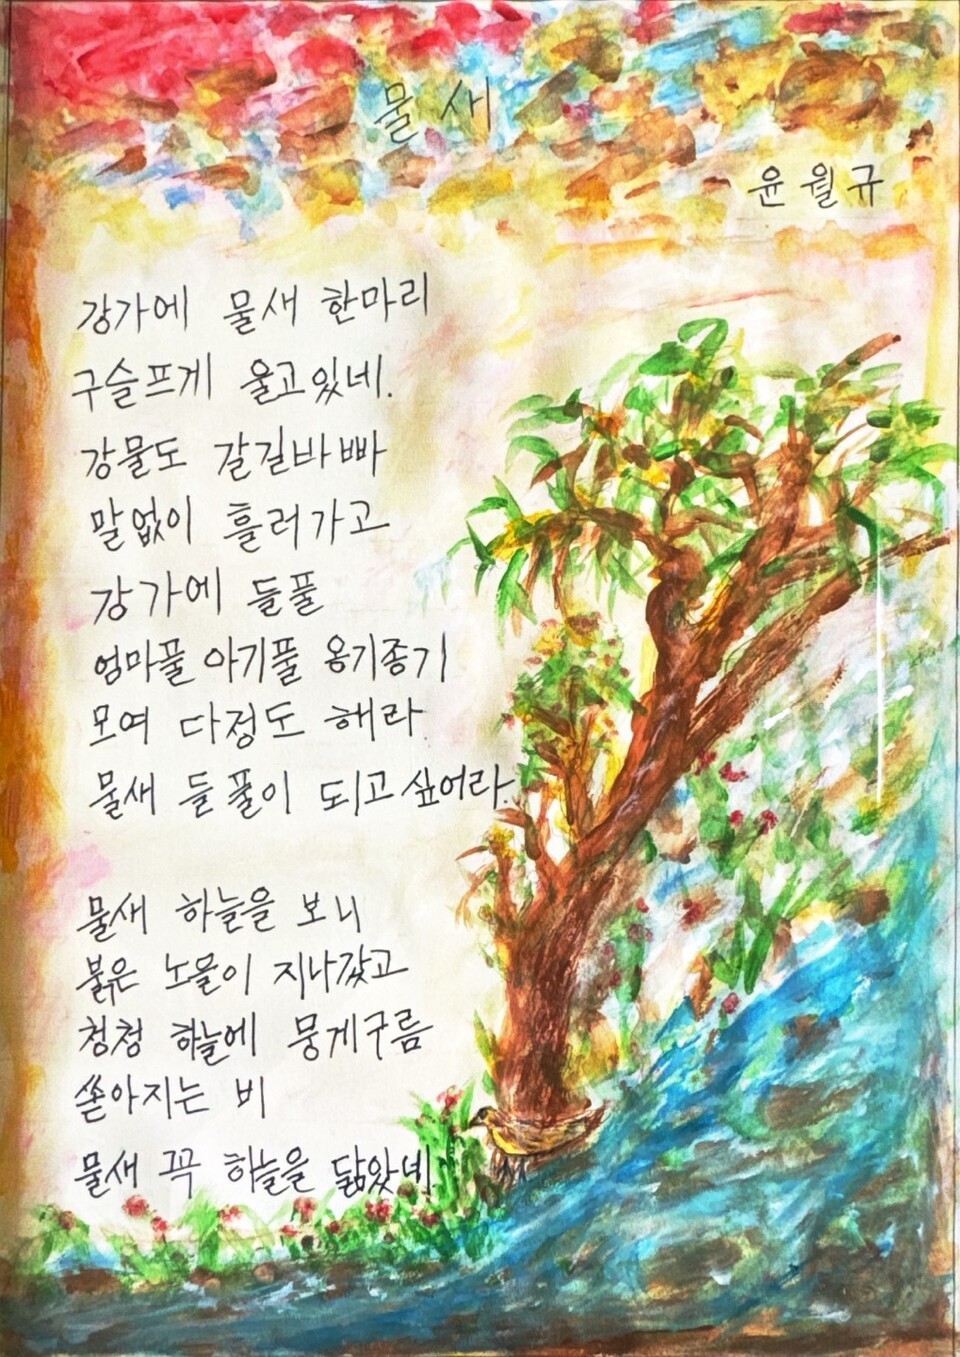 물새
윤월규
강가에 물새 한마리
구슬프게 울고있네.
강물도 갈길바빠
말없이 흘러가고
강가에 들풀
엄마풀 아기풀 옹기종기
모여 다정도 해라
물새 들풀이 되고싶어라.
물새 하늘을 보니
붉은 노을이 지나갔고
청청 하늘에 뭉게구름
쏟아지는 비
물새 꼭 하늘을 닮았네.